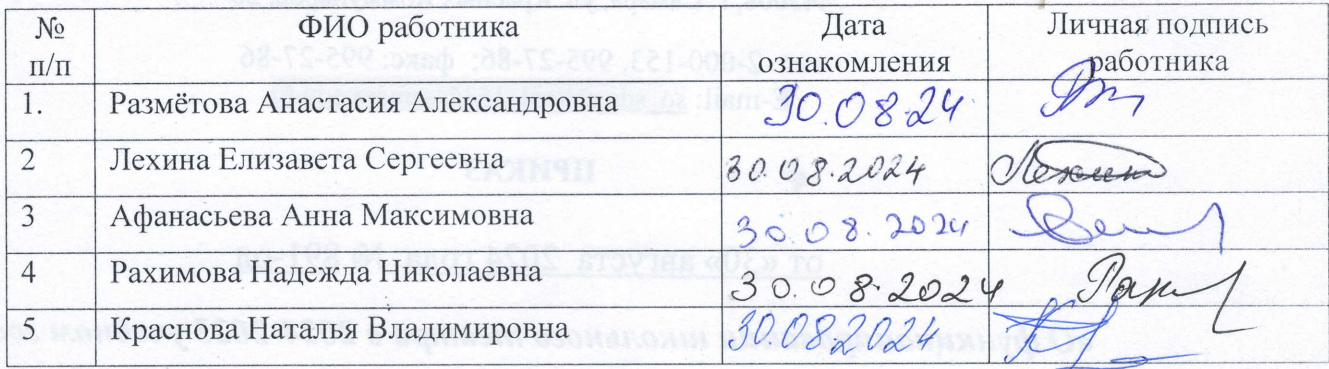 № п/п ФИО работника Дата ознакомления Личная подпись работника
1. Размётова Анастасия Александровна 30.08.24
2 Лехина Елизавета Сергеевна 30.08.2024
3 Афанасьева Анна Максимовна 30.08.2024
4 Рахимова Надежда Николаевна 30.08.2024
5 Краснова Наталья Владимировна 30.08.2024